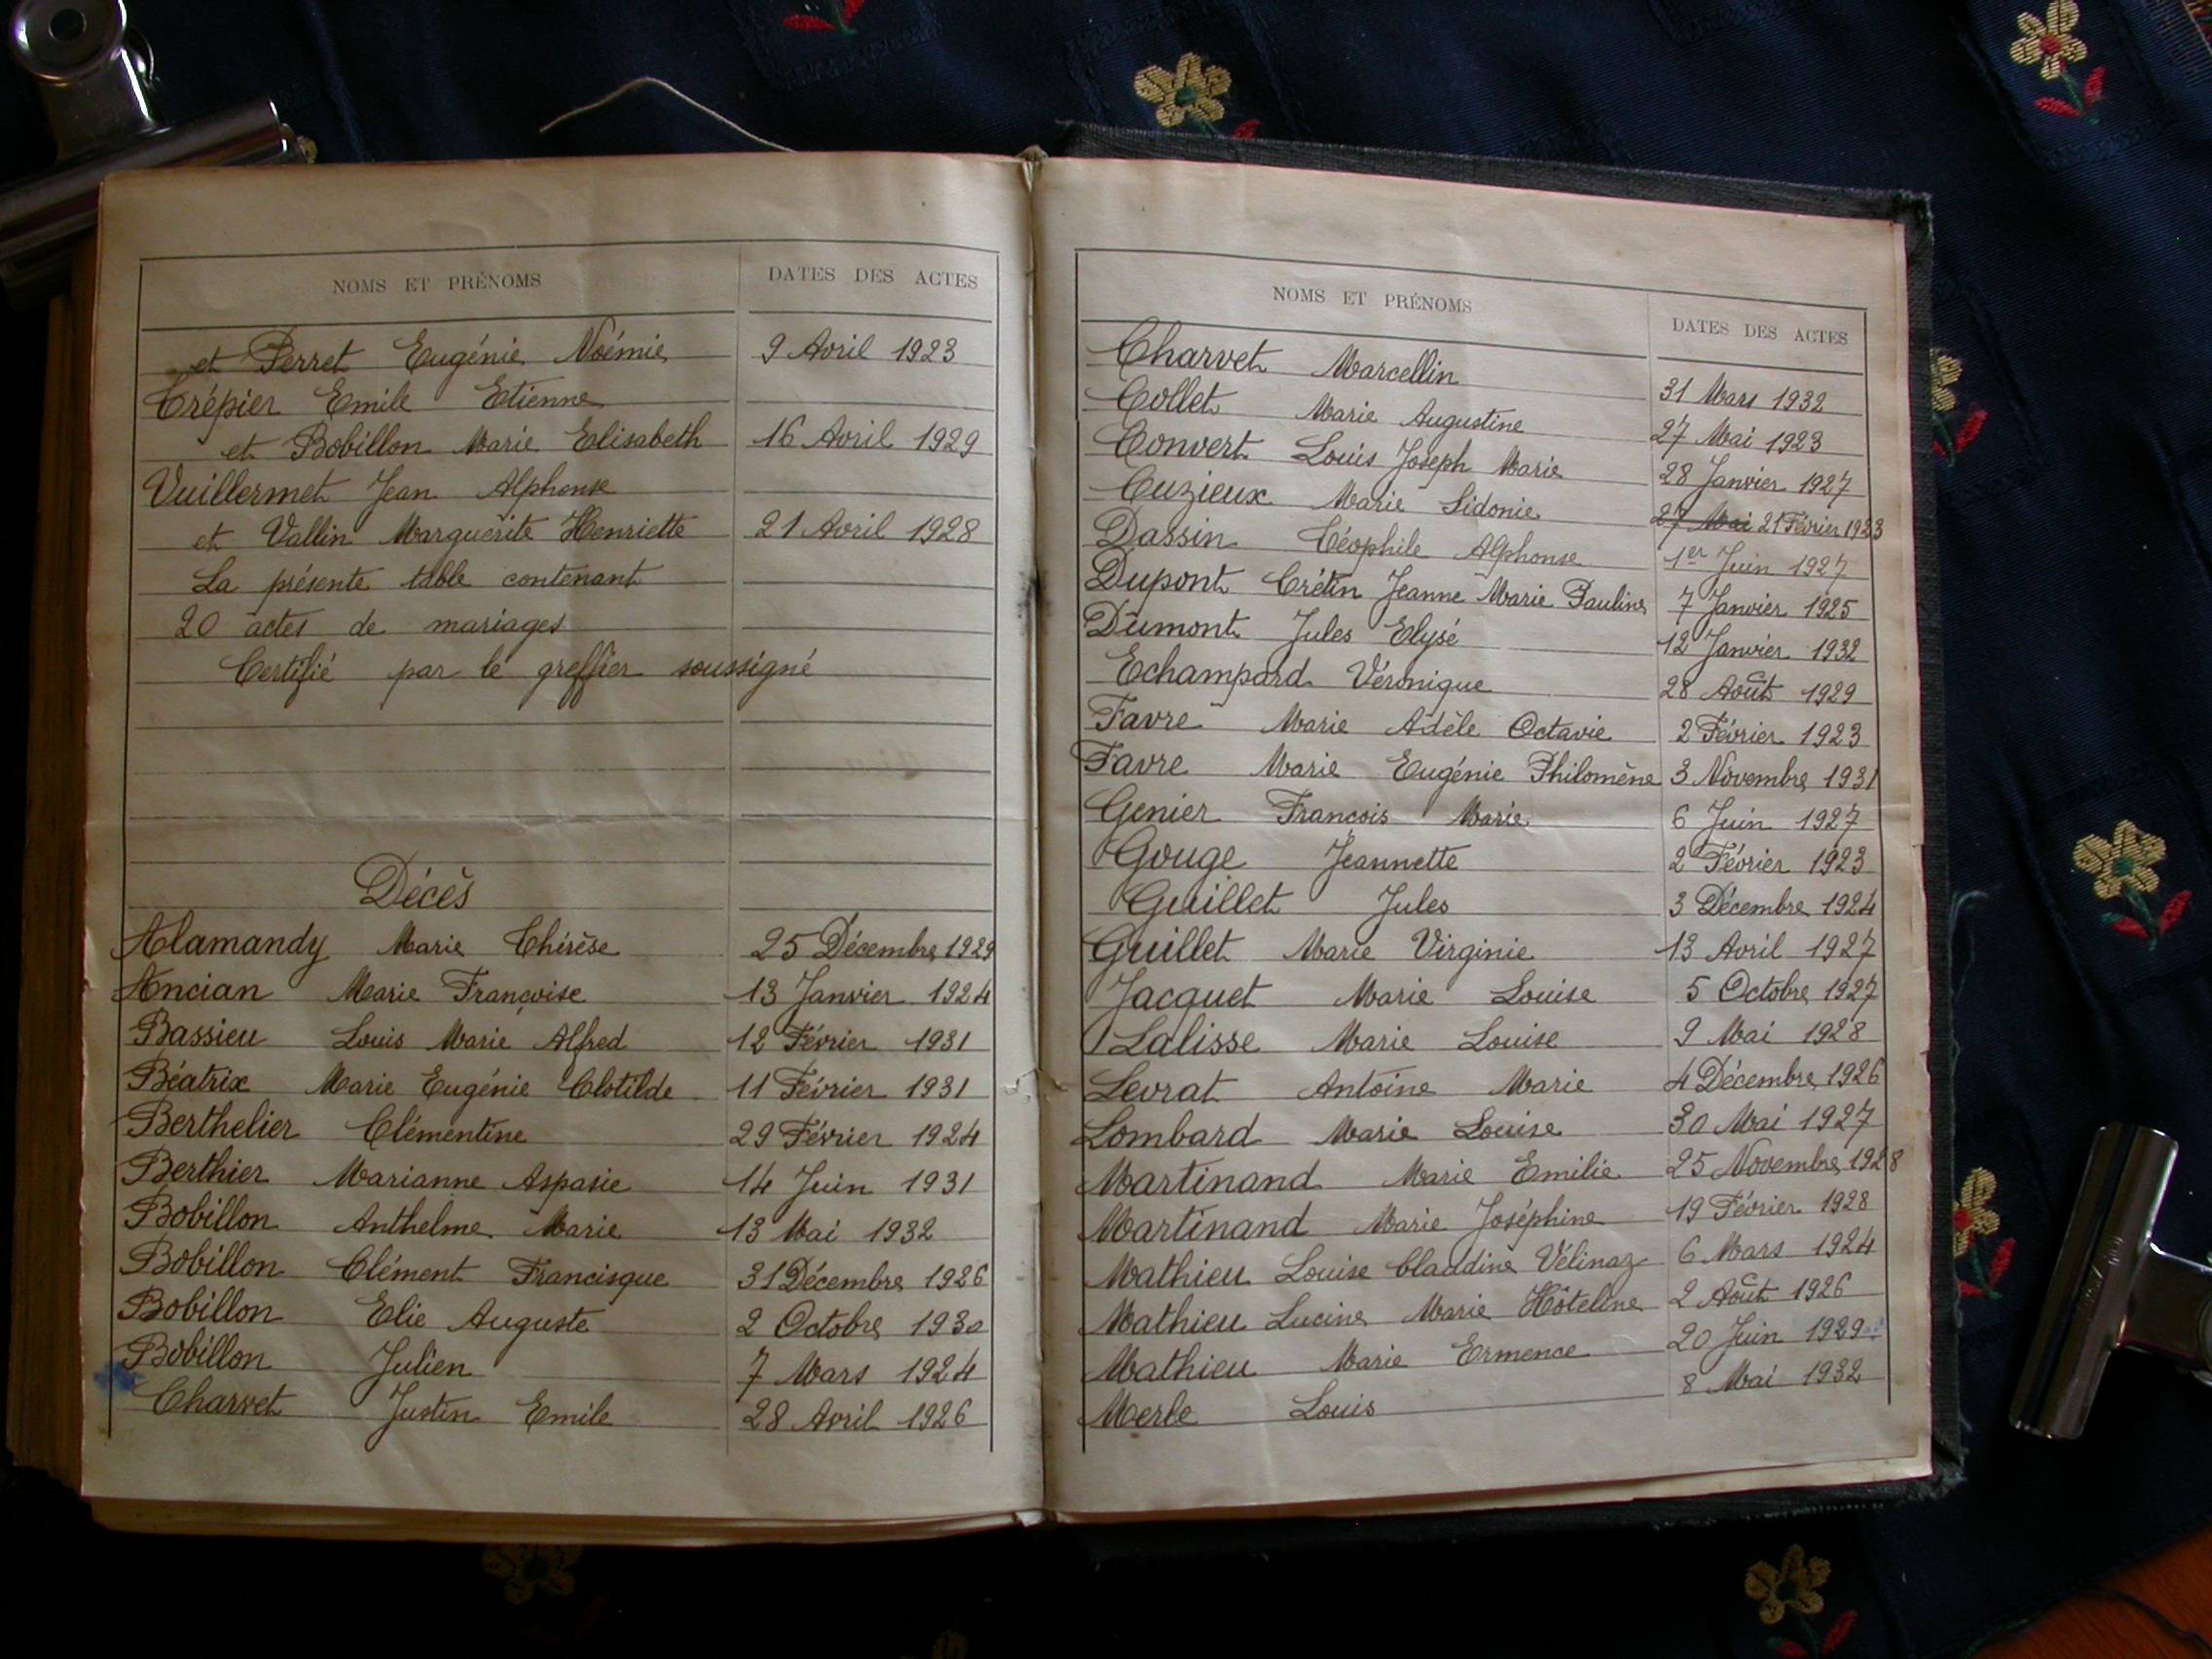 NOMS ET PRÉNOMS DATES DES ACTES
et Perret Eugénie Noémie 9 Avril 1923
Trépier Emile Etienne
et Bobillon Marie Elisabeth 16 Avril 1929
Vuillermet Jean Alphonse
et Vallin Marguerite Henriette 21 Avril 1928
La présente table contenant
20 actes de mariages
Certifié par le greffier soussigné
Décès
Alamandy Marie Thérèse 25 Décembre 1929
Ancian Marie Françoise 13 Janvier 1924
Bassieu Louis Marie Alfred 12 Février 1931
Béatrix Marie Eugénie Clotilde 11 Février 1931
Berthelier Clémentine 29 Février 1924
Berthier Marianne Aspasie 14 Juin 1931
Bobillon Anthelme Marie 13 Mai 1932
Bobillon Clément Francisque 31 Décembre 1926
Bobillon Elie Auguste 2 Octobre 1930
Bobillon Julien 7 Mars 1924
Charvet Justin Emile 28 Avril 1926
NOMS ET PRÉNOMS DATES DES ACTES
Charvet Marcellin 31 Mars 1932
Collet Marie Augustine 27 Mai 1923
Convert Louis Joseph Marie 28 Janvier 1927
Cuzieux Marie Sidonie 27 Mai 21 Février 1923
Dassin Théophile Alphonse 1er Juin 1927
Dupont Crétin Jeanne Marie Pauline 7 Janvier 1925
Dumont Jules Elysé 12 Janvier 1932
Echampard Véronique 28 Août 1929
Favre Marie Adèle Octavie 2 Février 1923
Favre Marie Eugénie Philomène 3 Novembre 1931
Genier François Marie 6 Juin 1927
Gouge Jeannette 2 Février 1923
Guillet Jules 3 Décembre 1924
Guillet Marie Virginie 13 Avril 1927
Jacquet Marie Louise 5 Octobre 1927
Lalisse Marie Louise 9 Mai 1928
Levrat Antoine Marie 4 Décembre 1926
Lombard Marie Louise 30 Mai 1927
Martinand Marie Emilie 25 Novembre 1928
Martinand Marie Joséphine 19 Février 1928
Mathieu Louise Claudine Vélinaz 6 Mars 1924
Mathieu Lucine Marie Hôteline 2 Août 1926
Mathieu Marie Ermence 20 Juin 1929
Merle Louis 8 Mai 1932